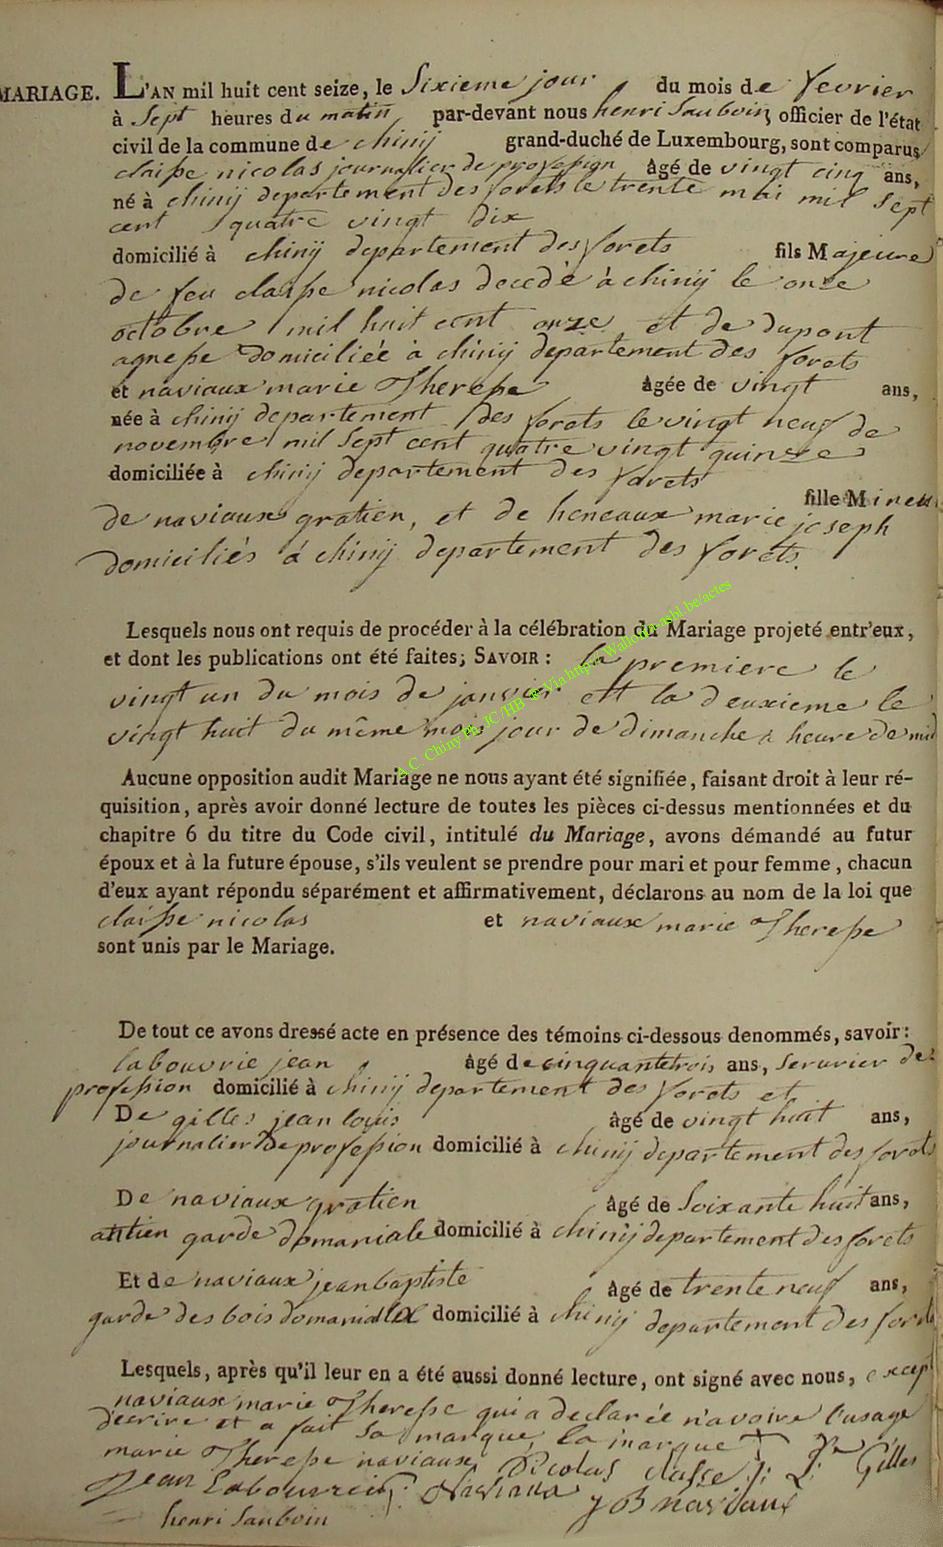 MARIAGE. L'AN mil huit cent seize, le Sixieme jour du mois de fevrier
à Sept heures du matin par-devant nous henri Sauboin, officier de l'état
civil de la commune de chinij grand-duché de Luxembourg, sont comparus
claisse nicolas journalier de profession âgé de vingt cinq ans,
né à chinij departement des forets le trente mai mil sept
cent quatre vingt dix
domicilié à chinij departement des forets fils Majeure
de feu claisse nicolas decedé à chinij le onze
octobre mil huit cent onze et de Dupont
agnesse domiciliée à chinij departement des forets
et naviaux marie Theresse âgée de vingt ans,
née à chinij departement des forets le vingt neuf de
novembre mil sept cent quatre vingt quinze
domiciliée à chinij departement des forets
fille Mineur
de naviaux gratien, et de heneaux marie joseph
domiciliés à chinij departement des forets.
Lesquels nous ont requis de procéder à la célébration du Mariage projeté entr'eux,
et dont les publications ont été faites; SAVOIR : la premiere le
vingt un du mois de janvier ett la deuxieme le
vingt huit du même mois jour de dimanche à heure de midi
A.C. Chiny Ph. JC /HB © Via http://Wallonia-asbl.be/actes
Aucune opposition audit Mariage ne nous ayant été signifiée, faisant droit à leur ré-
quisition, après avoir donné lecture de toutes les pièces ci-dessus mentionnées et du
chapitre 6 du titre du Code civil, intitulé du Mariage, avons démandé au futur
époux et à la future épouse, s'ils veulent se prendre pour mari et pour femme, chacun
d'eux ayant répondu séparément et affirmativement, déclarons au nom de la loi que
claisse nicolas et naviaux marie Theresse
sont unis par le Mariage.
De tout ce avons dressé acte en présence des témoins ci-dessous denommés, savoir:
labouvrie jean âgé de cinquante trois ans, serurier de
profession domicilié à chinij departement des forets et
De gilles jean louis âgé de vingt huit ans,
journalier de profession domicilié à chinij departement des forets
De naviaux gratien âgé de Soixante huit ans,
antien garde domaniale domicilié à chinij departement des forets
Et de naviaux jean baptiste âgé de trente neuf ans,
garde des bois domaniallex domicilié à chinij departement des forets
Lesquels, après qu'il leur en a été aussi donné lecture, ont signé avec nous, except
naviaux marie Theresse qui a declarée n'avoire l'usage
decrire et a fait sa marque, la marque †
marie Theresse naviaux Nicolas classe J: L: Gilles
Jean Labouvrie naviaux J B naviaux
henri Sauboin